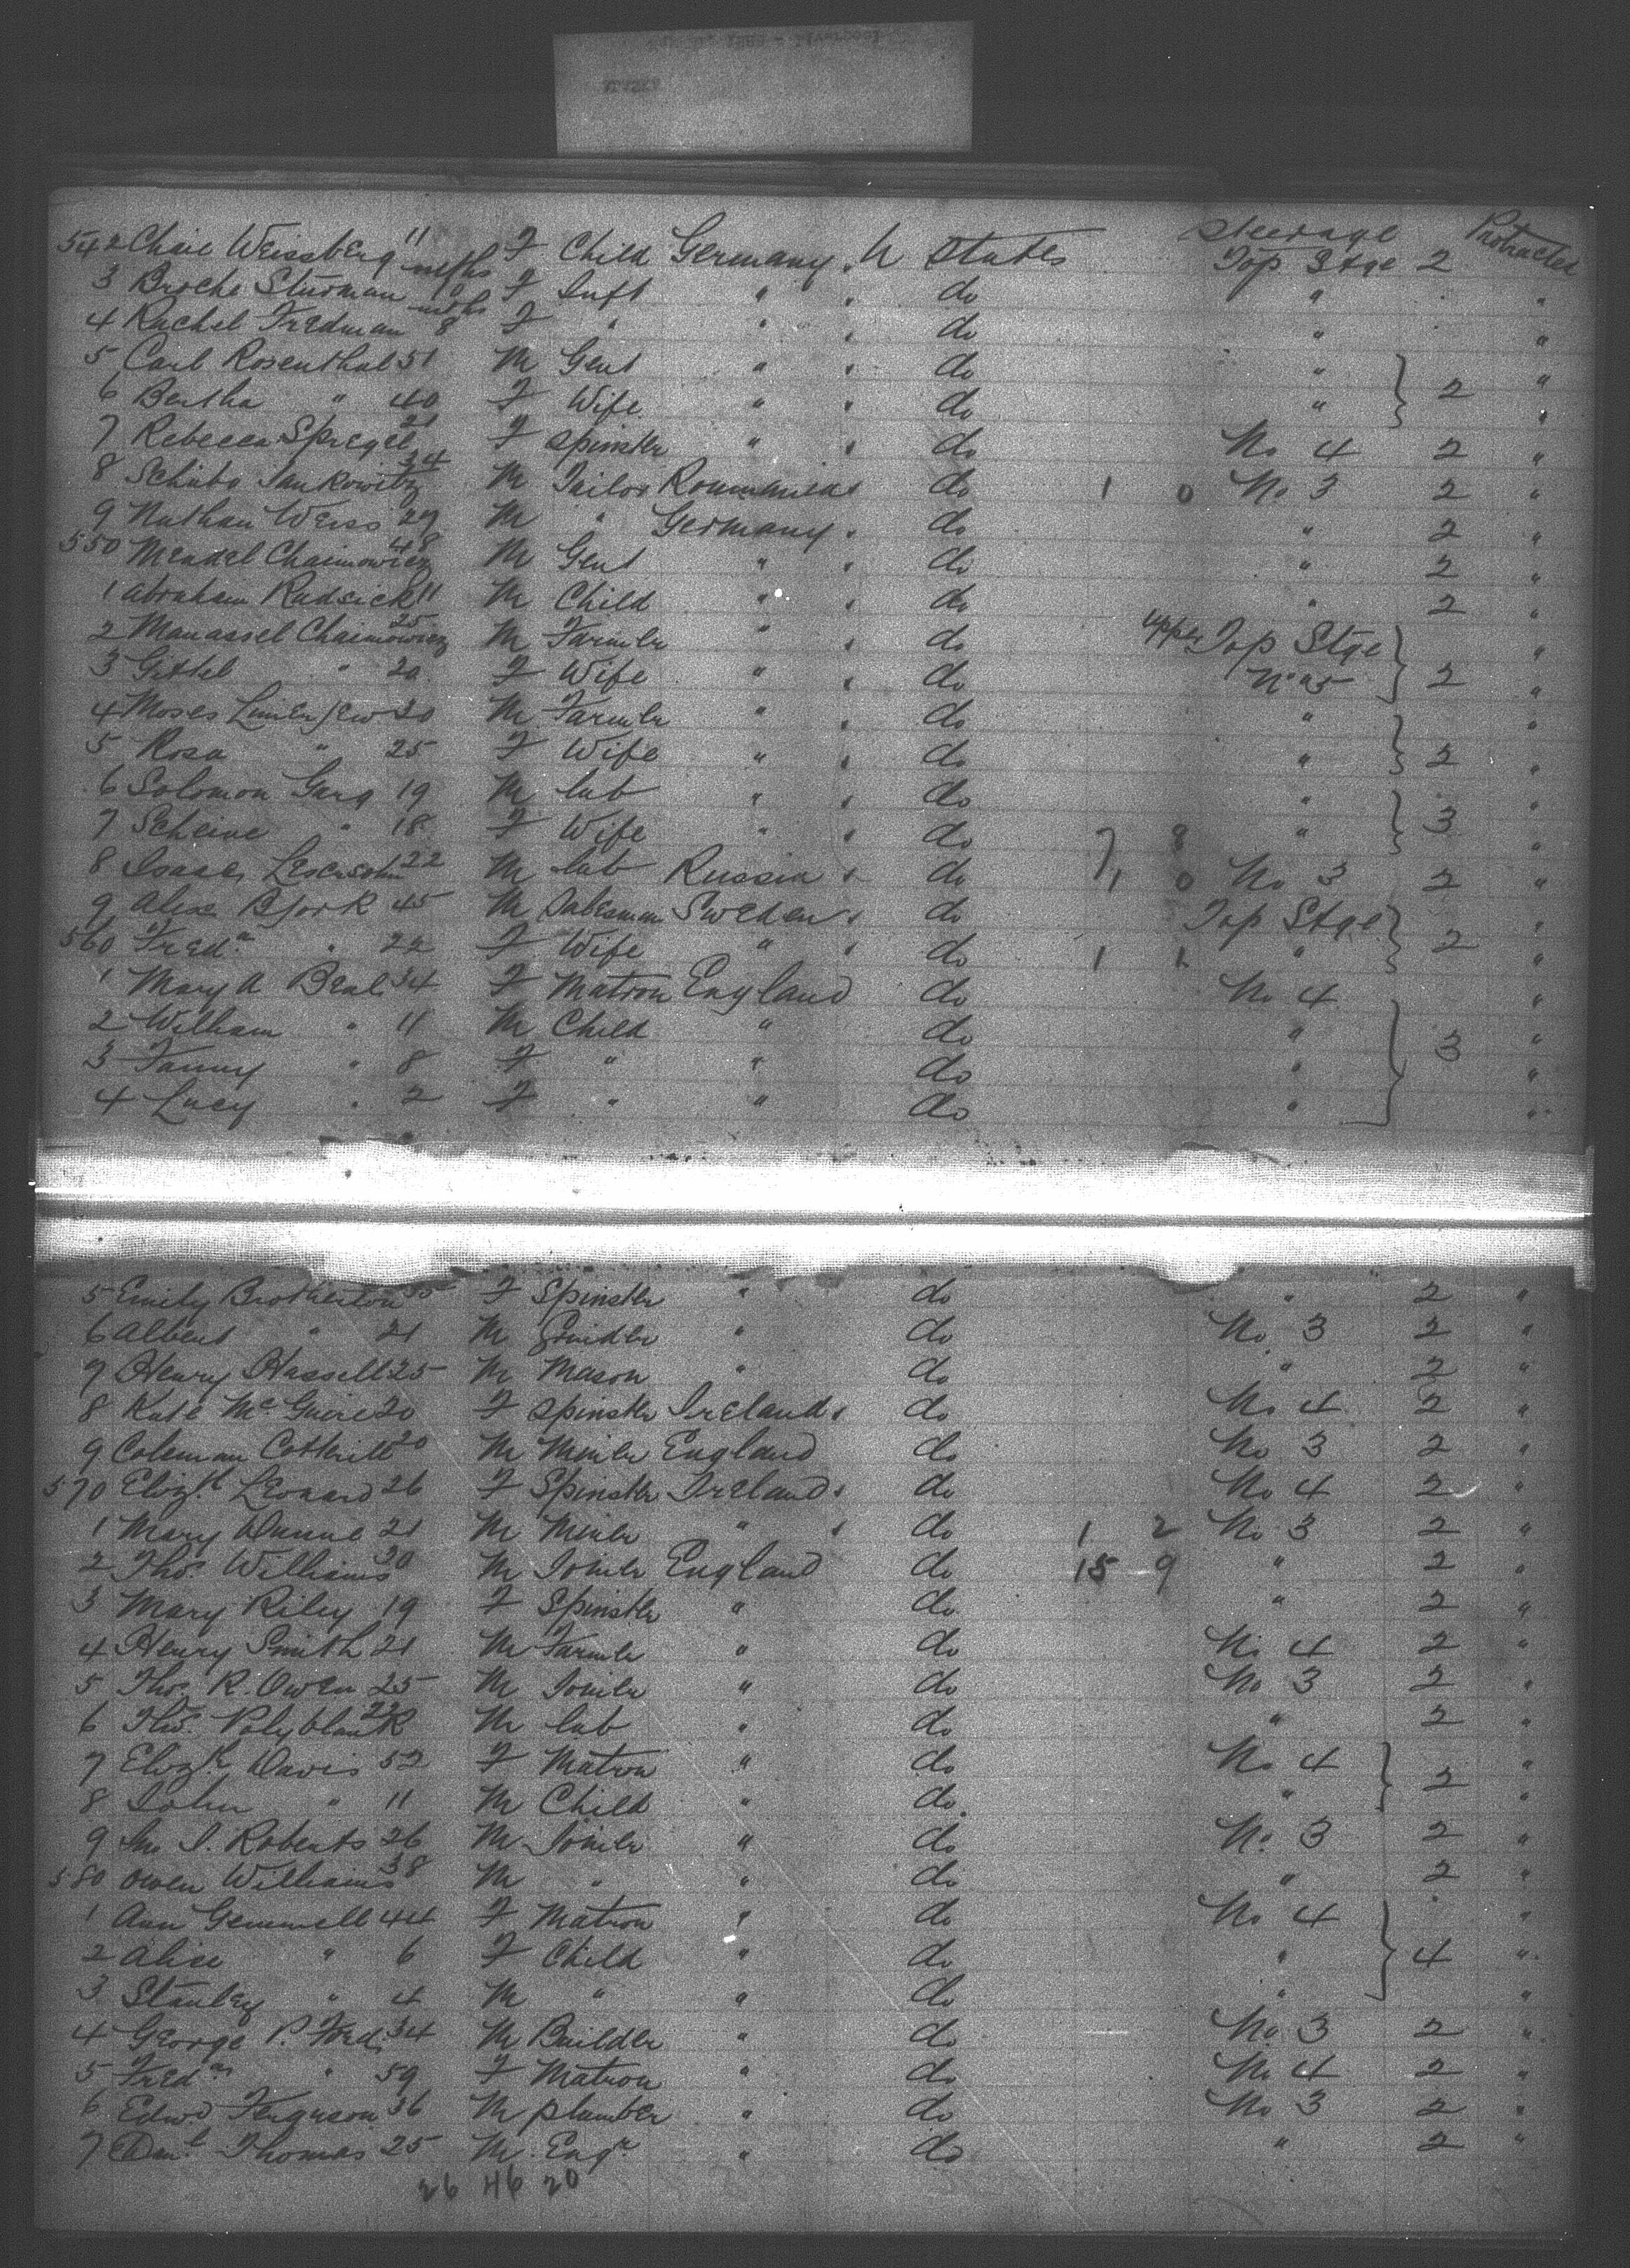 Steerage Protracted
542 Chaie Weissberg 11 mths F Child Germany " U States Top Stge 2
3 Broche Sturman 10 mths F Inft " " do " "
4 Rachel Fredman 8 F " " " do " "
5 Carl Rosenthal 51 M Gent " " do " "
6 Bertha " 40 F Wife " " do " 2 "
7 Rebecca Spregel 21 F Spinster " " do No 4 2 "
8 Schiba Jankowitz 24 M Tailor Roumania " do 1 0 No 3 2 "
9 Nathan Weiss 29 M " Germany " do " 2 "
550 Mendel Chaimowicz 48 M Gent " " do " 2 "
1 Abraham Rudsick 11 M Child " " do " 2 "
2 Manassel Chaimowicz 25 M Farmer " " do upper Top Stge "
3 Gittel " 20 F Wife " " do No 5 2 "
4 Moses 20 M Farmer " " do " "
5 Rosa " 25 F Wife " " do " 2 "
6 Solomon Garg 19 M Lab " " do " "
7 Scheine " 18 F Wife " " do 7 8 " 3 "
8 Isaac Lesersohn 22 M Lab Russia " do 1 0 No 3 2 "
9 Alex Bjork 45 M Salesman Sweden " do Top Stge "
560 Fredª " 22 F Wife " " do 1 1 " 2 "
1 Mary A Beal 34 F Matron England do No 4 "
2 William " 11 M Child " do " "
3 Fanny " 8 F " " do " 3 "
4 Lucy " 2 F " " do " "
5 Emily Brotherton 35 F Spinster " do " 2 "
6 Albert " 21 M Grinder " do No 3 2 "
7 Henry Hassell 25 M Mason " do " 2 "
8 Kate McGuire 20 F Spinster Ireland " do No 4 2 "
9 Coleman Cotterill 20 M Miner England do No 3 2 "
570 Elizth Leonard 26 F Spinster Ireland " do No 4 2 "
1 Mary Dunne 21 M Miner " " do 1 2 No 3 2 "
2 Thos Williams 20 M Joiner England do 15 9 " 2 "
3 Mary Riley 19 F Spinster " do " 2 "
4 Henry Smith 21 M Farmer " do No 4 2 "
5 Thos R. Owen 25 M Joiner " do No 3 2 "
6 Thos Polyblank 22 M Lab " do " 2 "
7 Elizth Davis 52 F Matron " do No 4 "
8 John " 11 M Child " do " 2 "
9 Jno J. Roberts 26 M Joiner " do No 3 2 "
580 Owen Williams 38 M " " do " 2 "
1 Ann Gemmell 44 F Matron " do No 4 "
2 Alice " 6 F Child " do " 4 "
3 Stanley " 4 M " " do " "
4 George P. Ford 34 M Builder " do No 3 2 "
5 Fredª " 59 F Matron " do No 4 2 "
6 Edwd Ferguson 36 M plumber " do No 3 2 "
7 Danl Thomas 25 M Engr " do " 2 "
26 46 20